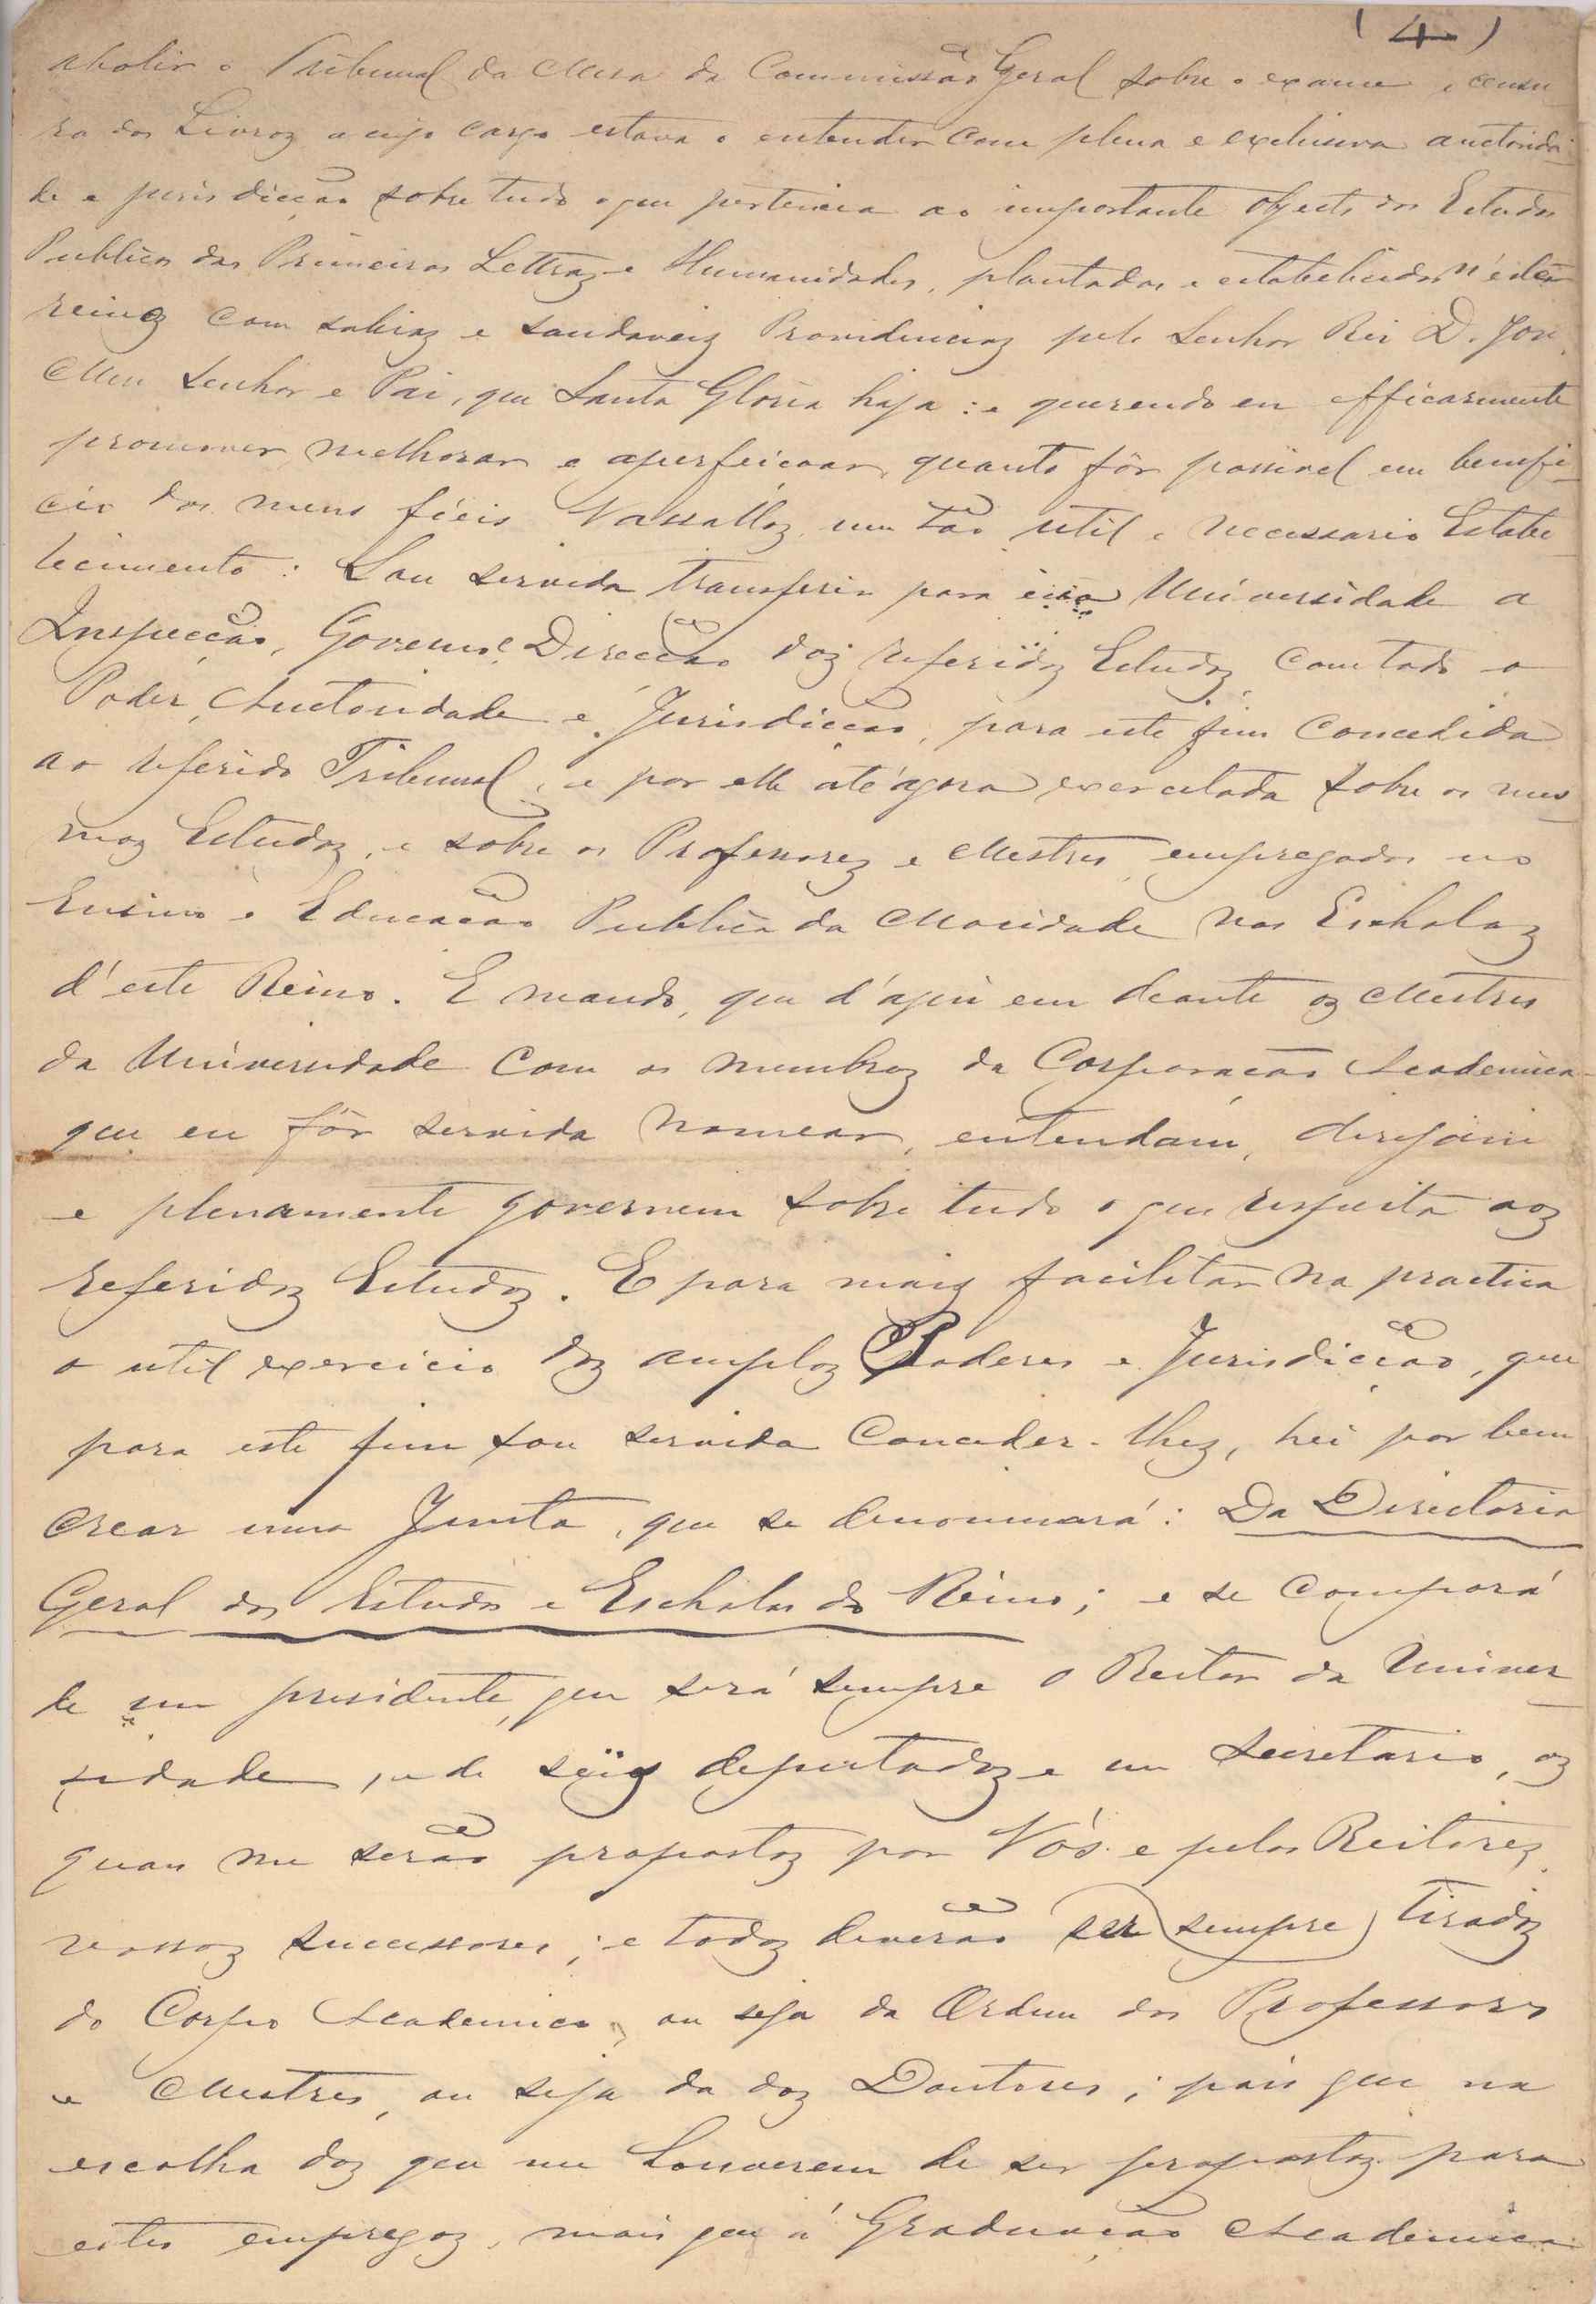 (4)
abolir o Tribunal da Mesa da Commissão Geral sobre o exame e censu
ra dos Livros a cujo cargo estava o entender com plena e exclusiva auctorida-
de e jurisdicção sobre tudo o que pertencia ao importante objecto dos Estudos
Publicos das Primeiras Lettras e Humanidades, plantados e estabelecidos n'estes
reinos com sabias e saudaveis Providencias pelo Senhor Rei D. José,
Meu Senhor e Pai, que Santa Gloria haja: e querendo eu efficasmente
promover, melhorar e aperfeiçoar, quanto fôr possivel em benefi-
cio dos meus fiéis Vassallos, um tão util e necessario Estabe
lecimento: Sou servida transferir para essa Universidade a
Inspecção, Governo e Direcção dos referidos Estudos com todo o
Poder, Auctoridade e Jurisdicção, para este fim concedida
ao referido Tribunal, e por elle até agora exercitada sobre os mes-
mos Estudos, e sobre os Professores e Mestres empregados no
Ensino e Educação Publica da Mocidade nas Escholas
d'este Reino. E mando, que d'aqui em deante os Mestres
da Universidade com os membros da Corporação Academica
que eu fôr servida nomear, entendam, dirijam
e plenamente governem sobre tudo o que respeita aos
referidos Estudos. E para mais facilitar na practica
o util exercicio dos amplos Poderes e Jurisdicção, que
para este fim sou servida conceder-lhes, hei por bem
crear uma Junta, que se denominará: Da Directoria
Geral dos Estudos e Escholas do Reino; e se comporá
de um presidente, que será sempre o Reitor da Univer
sidade, e de seis deputados e um Secretario, os
quaes me serão propostos por Vós e pelos Reitores
vossos successores; e todos deverão ser sempre tirados
do Corpo Academico, ou seja da Ordem dos Professores
e Mestres, ou seja da dos Doutores; pois que na
escolha dos que me houverem de ser propostos para
estes empregos, mais que á Graduação Academica